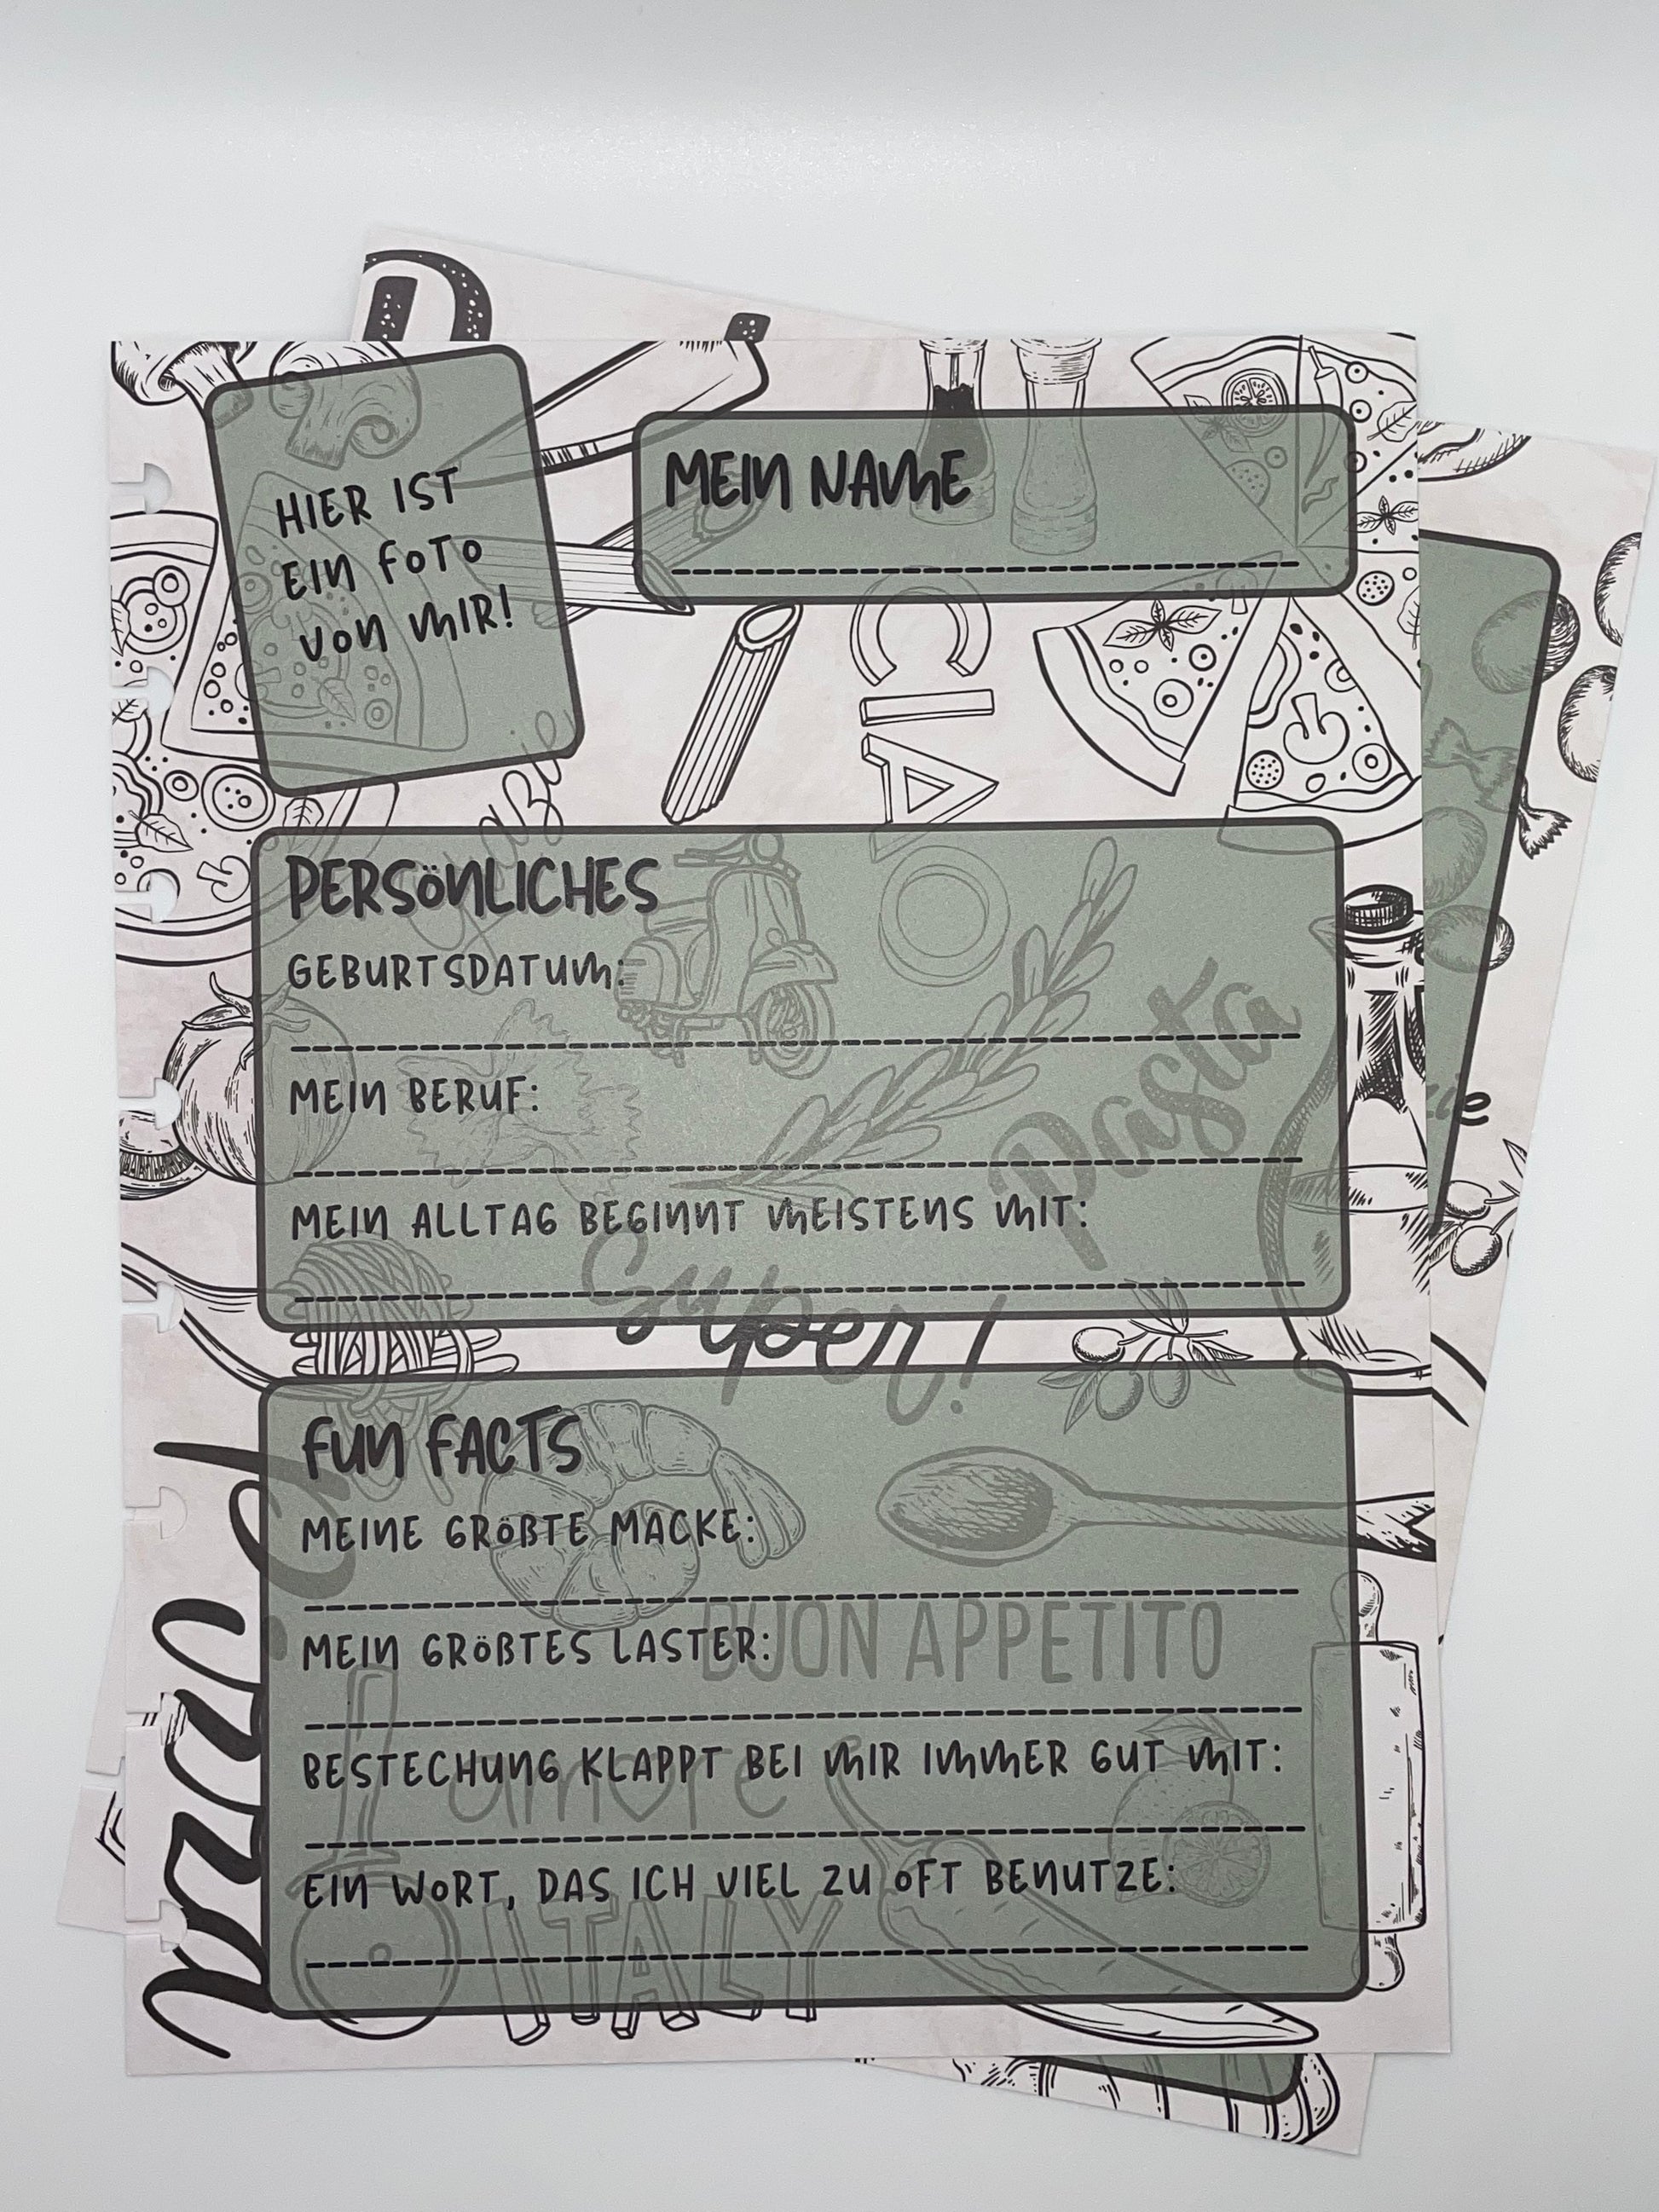 HIER IST
EIN FOTO
VON MIR!
MEIN NAME
CIAO
PERSÖNLICHES
GEBURTSDATUM:
MEIN BERUF:
Pasta
MEIN ALLTAG BEGINNT MEISTENS MIT:
Super!
FUN FACTS
MEINE GRÖßTE MACKE:
BUON APPETITO
MEIN GRÖßTES LASTER:
BESTECHUNG KLAPPT BEI MIR IMMER GUT MIT:
amore
EIN WORT, DAS ICH VIEL ZU OFT BENUTZE:
ITALY